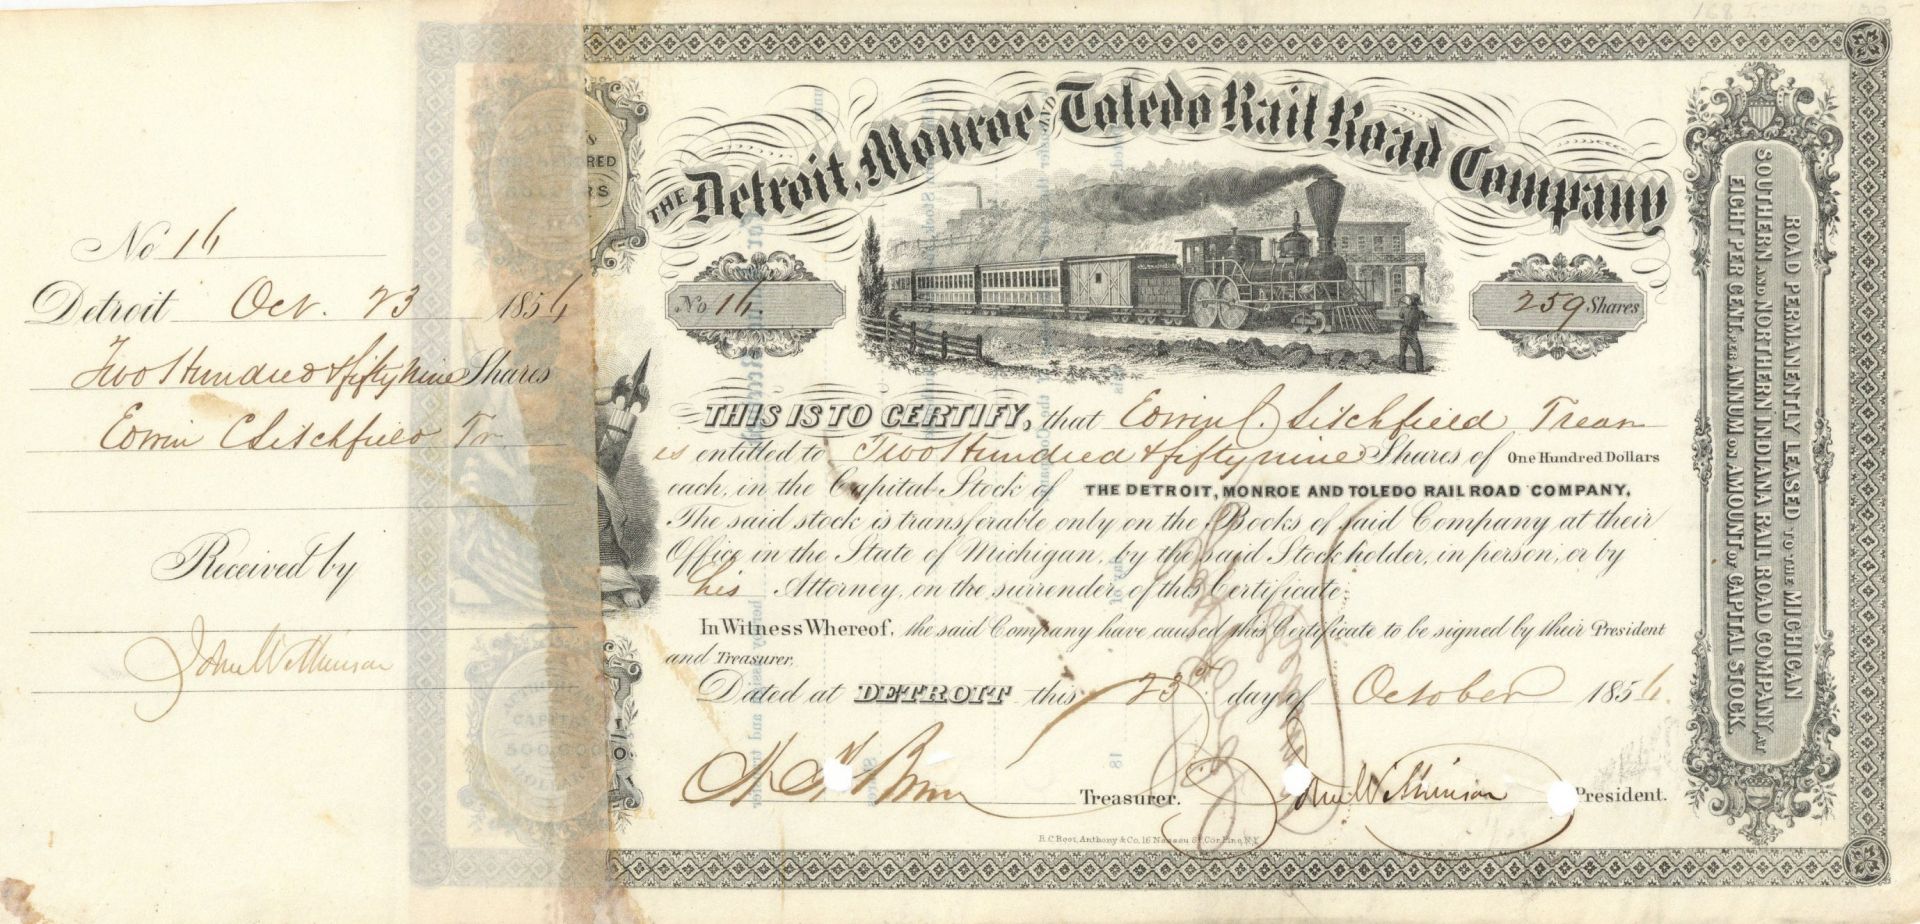 No 16
Detroit Oct. 23 1856
Two Hundred & fifty nine Shares
Edwin C Litchfield Tr.
Received by
John Wilkinson
RED
RS
CAPITAL
500,000
DOLLARS
THE Detroit, Monroe AND Toledo Rail Road Company
No 16
259 Shares
THIS IS TO CERTIFY, that Edwin C. Litchfield, Treas
is entitled to Two Hundred & fifty nine Shares of One Hundred Dollars
each, in the Capital Stock of THE DETROIT, MONROE AND TOLEDO RAIL ROAD COMPANY.
The said stock is transferable only on the Books of said Company at their
Office in the State of Michigan, by the said Stockholder, in person, or by
his Attorney, on the surrender of this Certificate.
In Witness Whereof, the said Company have caused this Certificate to be signed by their President
and Treasurer.
Dated at DETROIT this 23d day of October 1856.
Treasurer.
John Wilkinson President.
R. C. Root, Anthony & Co. 16 Nassau St. Cor. Pine, N.Y.
ROAD PERMANENTLY LEASED TO THE MICHIGAN
SOUTHERN AND NORTHERN INDIANA RAIL ROAD COMPANY, AT
EIGHT PER CENT. PER ANNUM ON AMOUNT OF CAPITAL STOCK